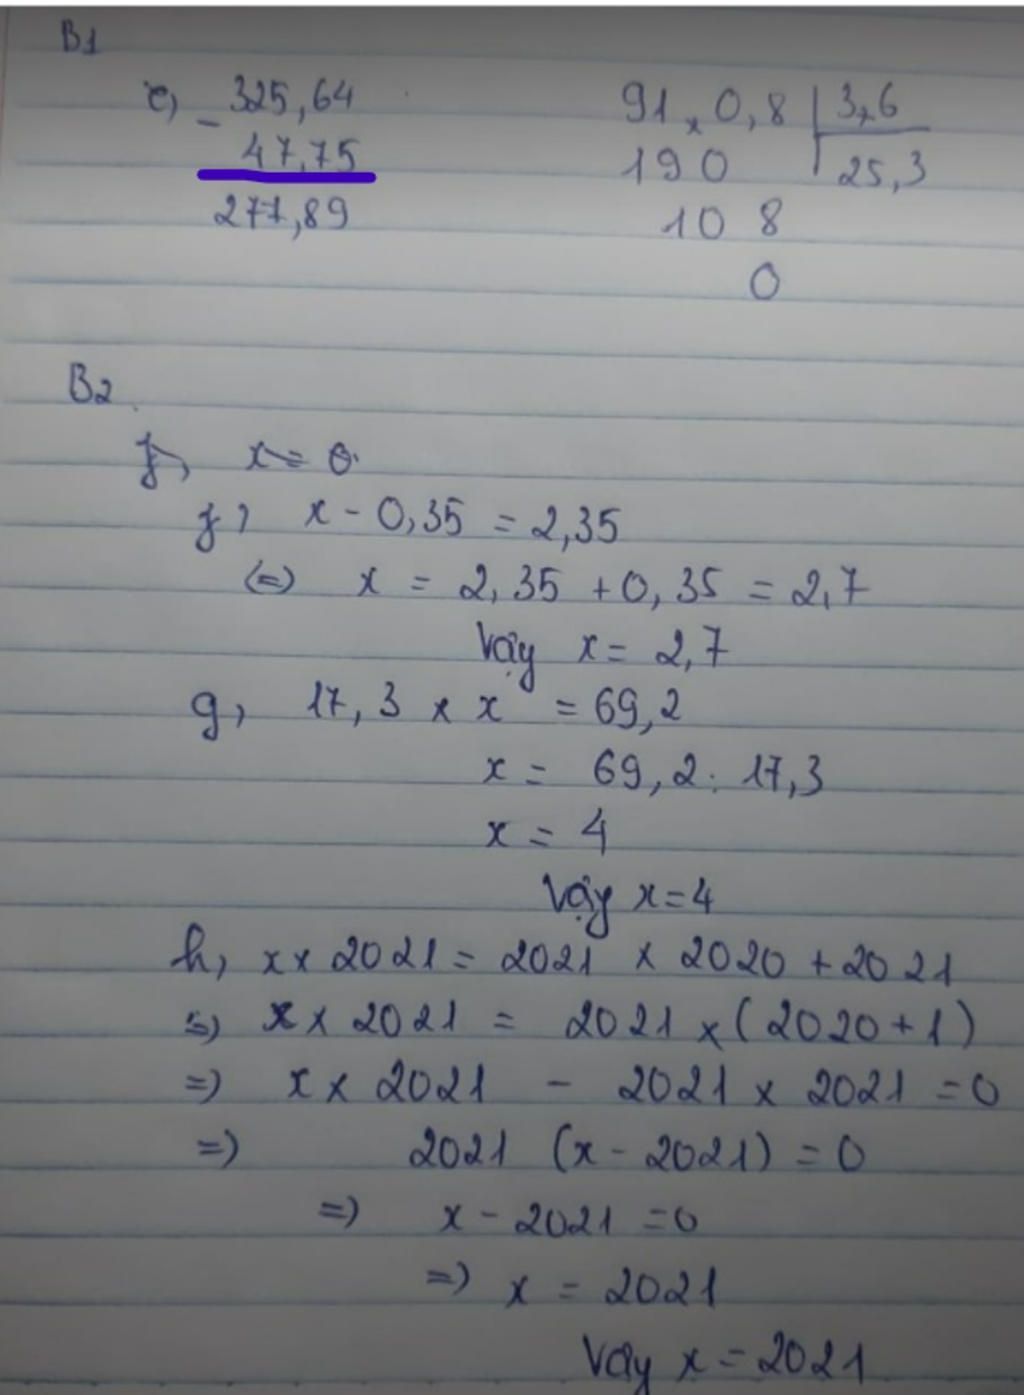 B1
e, - 325,64
47,75
277,89
91,0,8 | 3,6
190 25,3
10 8
0
B2
f, x = 0
f, x - 0,35 = 2,35
(=) x = 2,35 + 0,35 = 2,7
Vậy x = 2,7
g, 17,3 × x = 69,2
x = 69,2 : 17,3
x = 4
Vậy x = 4
h, x × 2021 = 2021 × 2020 + 2021
=) x × 2021 = 2021 × (2020 + 1)
=) x × 2021 - 2021 × 2021 = 0
=) 2021 (x - 2021) = 0
=) x - 2021 = 0
=) x = 2021
Vậy x = 2021